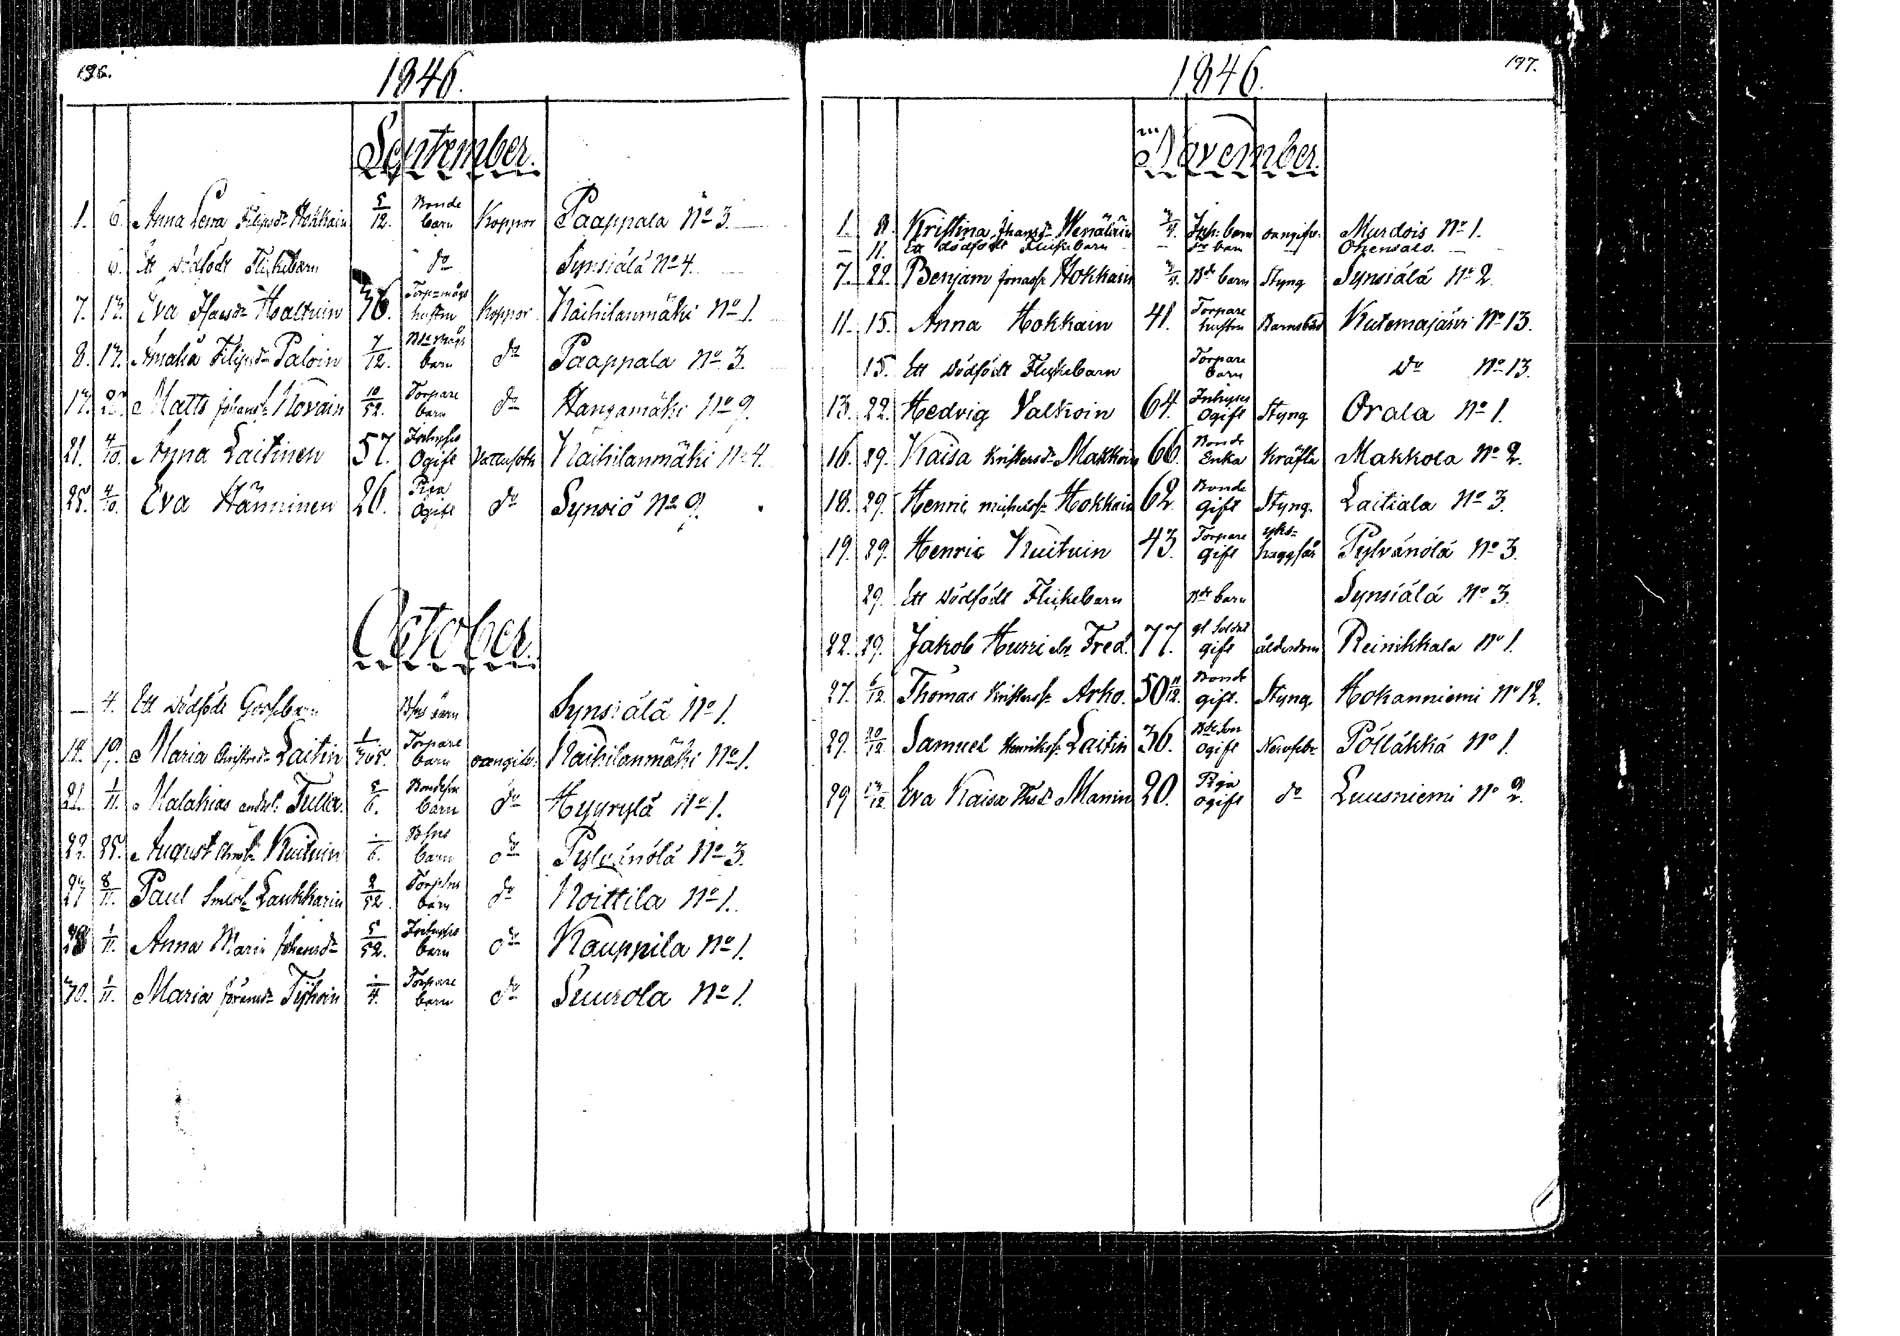 196.
1846.
September.
1. 6. Anna Lena Filipsdr Hokkain 5/12. Bonde barn Koppor Paappala No 3.
6. Ett Dödfödt Flickebarn do Synsiälä No 4.
7. 13. Eva Isacsdr Haltuin 36. hustru Koppor Kaihilanmäki No 1.
8. 13. Amalia Filipsdr Paloin 7/12. barn do Paappala No 3.
17. Matts Johanss. Kovain 10/52. Torpare barn do Hangamäki No 9.
21. 4/10. Anna Laitinen 57. Inhyses Ogift Vattusot Kaihilanmäki No 4.
25. 4/10. Eva Hänninen 26. Piga Ogift do Synsiö No 9.
October.
— 4. Ett Dödfödt Gossebarn Synsiälä No 1.
14. 19. Maria Laitin 1/365. Torpare barn oangifv. Kaihilanmäki No 1.
21. 1/11. Malakias Tuller 5/6. Bondeson barn do Hyyrylä No 1.
22. 25. August Kuituin 1/6. barn do Pylvänölä No 3.
27 8/11. Paul Laukkarin 2/52. barn do Koittila No 1.
28 1/11. Anna Maria Johansdr 5/52. Inhyses barn do Kauppila No 1.
30. 1/11. Maria Tyhoin 1/4. Torpare barn do Suurola No 1.
197.
1846.
November.
1. 8. Kristina Johansdr Wenäläin Inh. barn oangifv. Murdois No 1.
— 11. Ett dödfödt Flickebarn — do barn — Ohensalo. —
7. 22. Benjam Jonass. Hokkain Bde barn Styng Synsiälä No 2.
11. 15. Anna Hokkain 41. Torpare hustru Barnsbörd Kutemajärvi No 13.
15. Ett Dödfödt Flickebarn Torpare barn do No 13.
13. 22. Hedvig Valkoin 64. Inhyses Ogift Styng Orala No 1.
16. 29. Kaisa Kristersdr Makkoin 66. Bonde Enka Kräfta Makkola No 2.
18. 29. Henric Michelss. Hokkain 62. Bonde Gift Styng. Laitiala No 3.
19. 29. Henric Kuituin 43. Torpare Gift Pylvänölä No 3.
29. Ett Dödfödt Flickebarn Bde barn Synsiälä No 3.
22. 29. Jakob Hurri Fred. 77. gl Soldat gift ålderdom Reinikkala No 1.
27. 6/12. Thomas Kristerss. Arho. 50 11/12. Bonde gift. Styng. Hokanniemi No 12.
29. 20/12 Samuel Henrikss. Laitin 36. Bdeson ogift Nervfeb. Pölläkkä No 1.
29 13/12 Eva Kaisa Manin 20. Piga ogift do Luusniemi No 2.